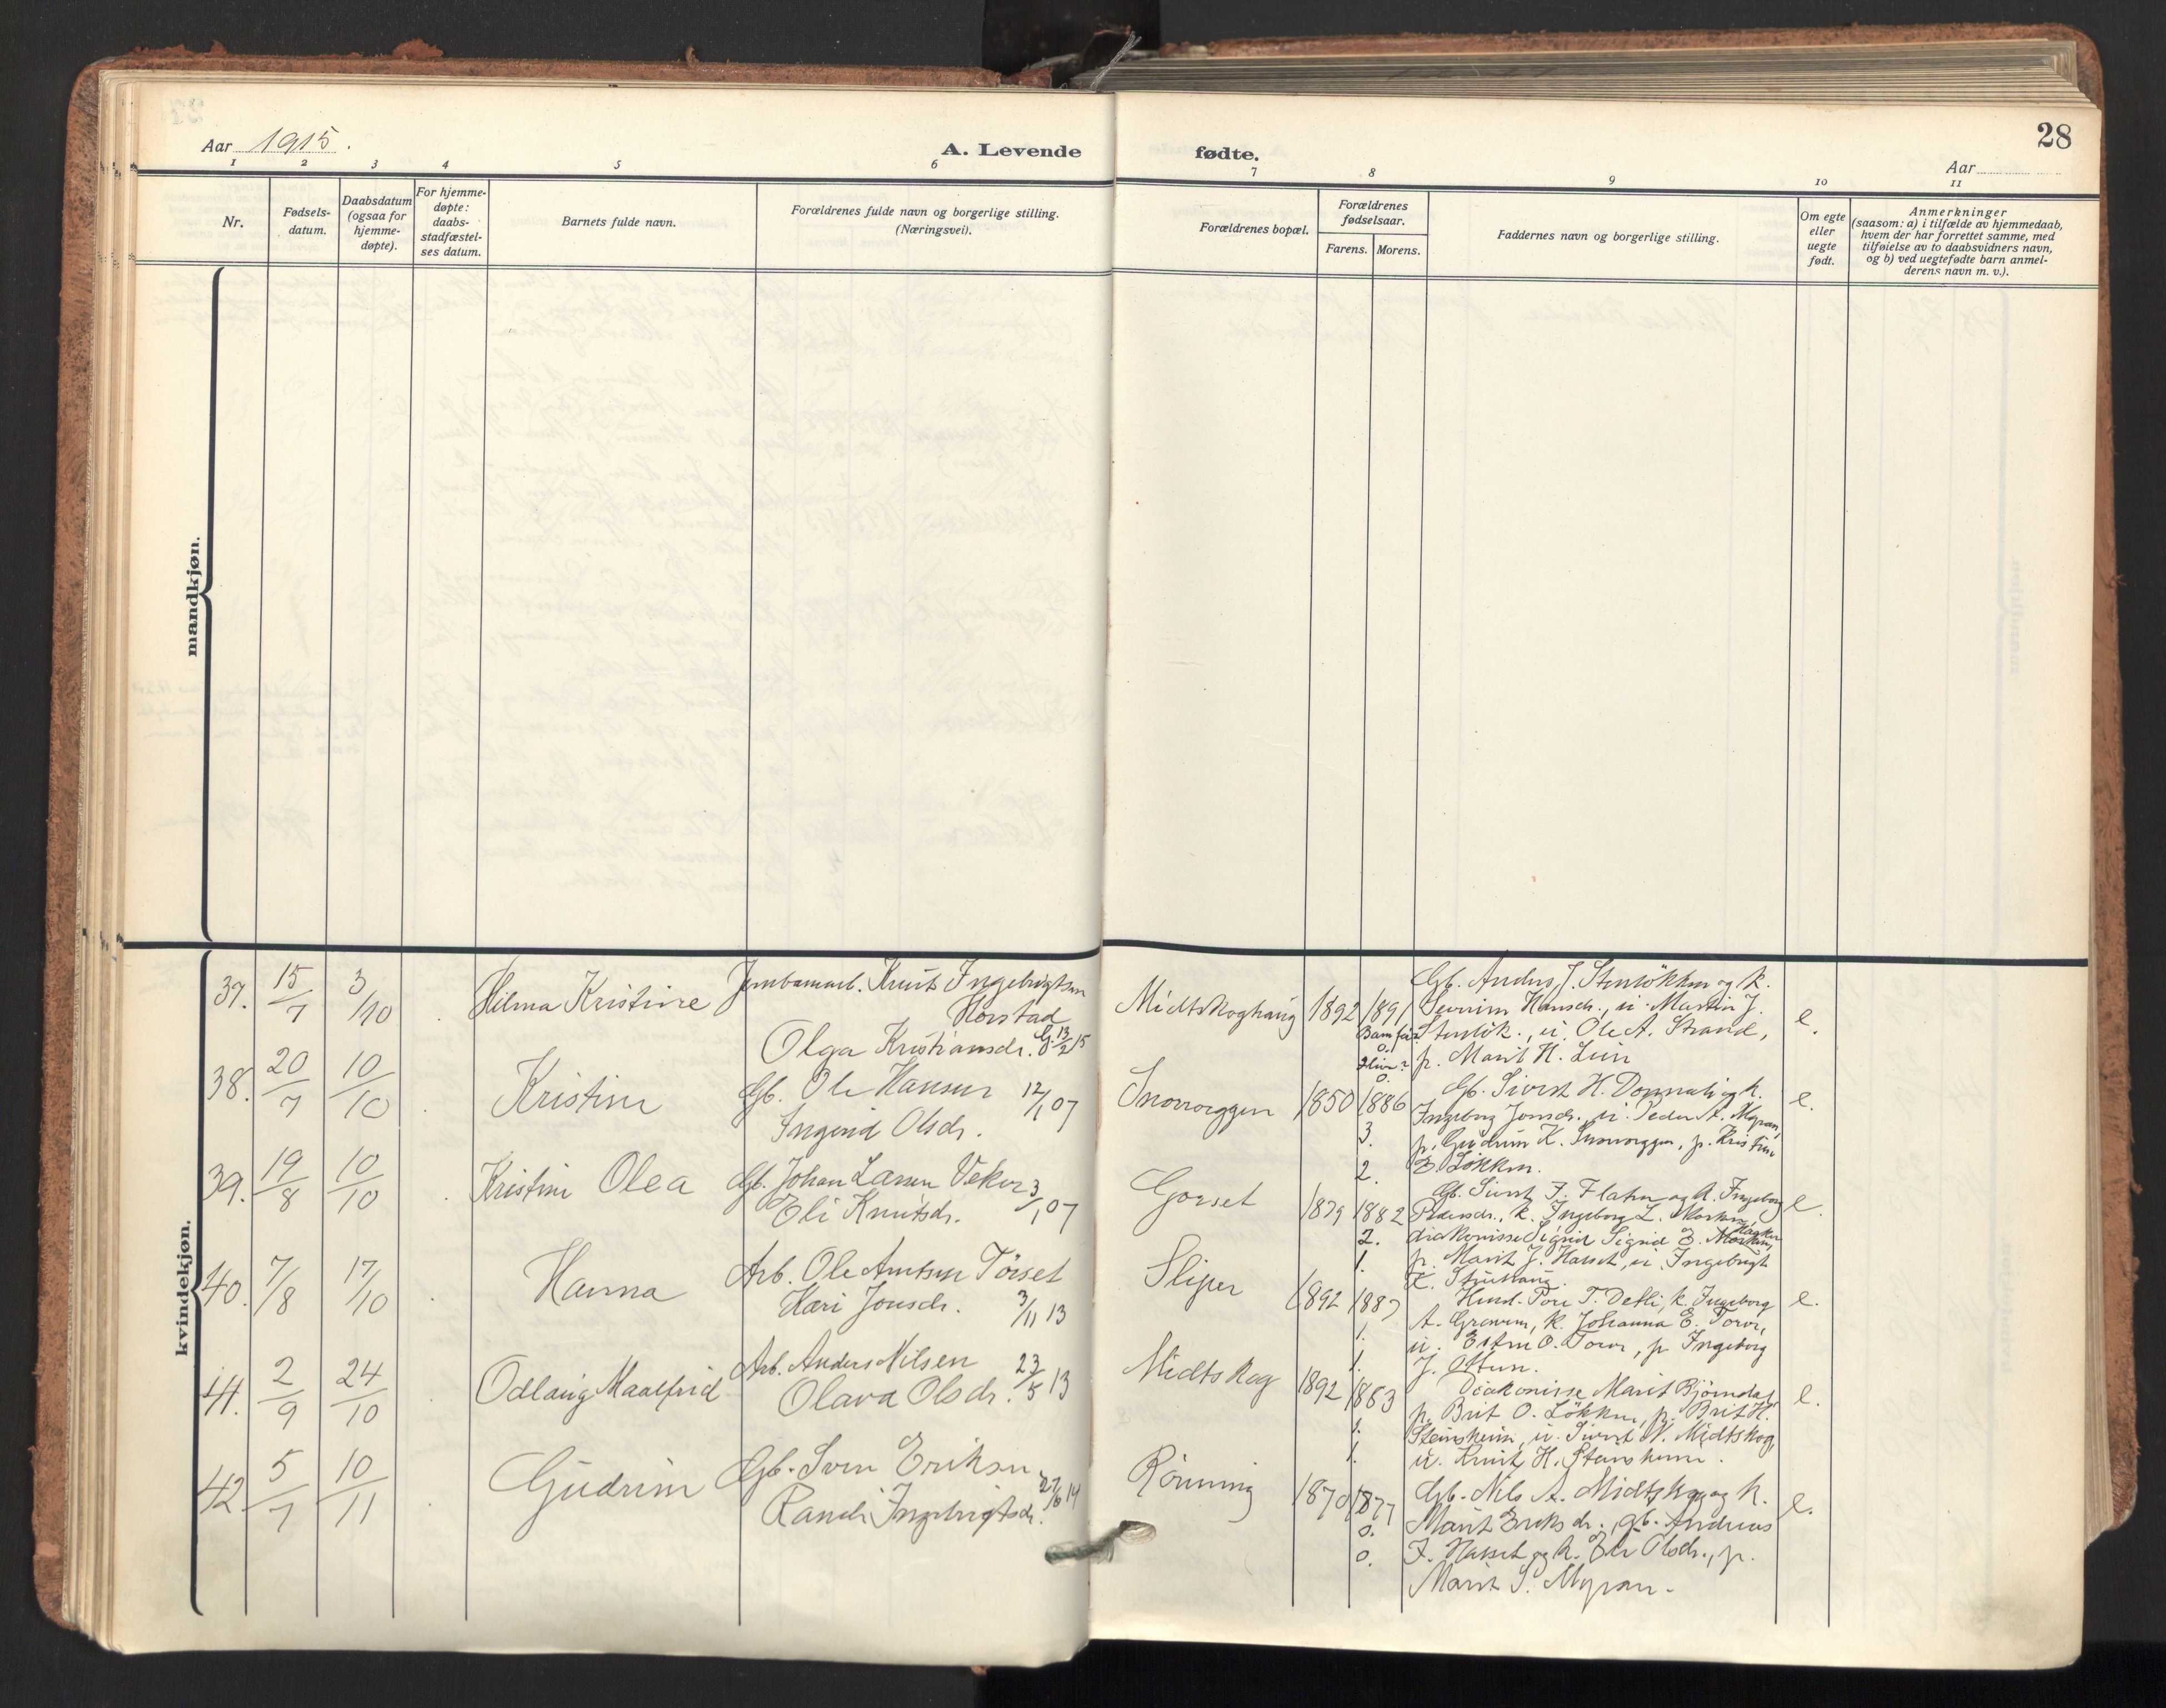 28
Aar 1915.
A. Levende
fødte.
Aar
1 2 3 4 5 6 7 8 9 10 11
Nr.
Fødsels-
datum.
Daabsdatum
(ogsaa for
hjemme-
døpte).
For hjemme-
døpte:
daabs-
stadfæstel-
ses datum.
Barnets fulde navn.
Forældrenes fulde navn og borgerlige stilling.
(Næringsvei).
Forældrenes bopæl.
Forældrenes
fødselsaar.
Farens. Morens.
Faddernes navn og borgerlige stilling.
Om egte
eller
uegte
født.
Anmerkninger
(saasom: a) i tilfælde av hjemmedaab,
hvem der har forrettet samme, med
tilføielse av to daabsvidners navn,
og b) ved uegtefødte barn anmel-
derens navn m. v.).
mandkjøn.
kvindekjøn.
37. 15/7 3/10 Hilma Kristine
Jernbanearb. Knut Ingebrigtsen
Horstad
Olga Kristiansdr. G. 13/2 15
Midtskoghaug 1892 1891
Barn før?
0.
Hliv?
0.
Gb. Anders J. Stenløkken og k.
Hansdr., u. Martin J.
Stenløk., u. Ole A. Strand,
p. Marit H. Lien
e.
38. 20/7 10/10 Kristine
Gb. Ole Hansen 12/1 07
Ingerid Olsdr.
Snoroggen 1850 1886
3.
2.
Gb. Sivert H. Donnali og k.
Ingeborg Jonsdr., u. Peder A. Myran,
p. Gudrun K. Snoroggen, p. Kristine
E. Løkken.
e.
39. 19/8 10/10 Kristine Olea
Gb. Johan Larsen Veker 3/1 07
Eli Knutsdr.
Gorset 1879 1882
2.
1.
Gb. Sivert J. Flaten og k. Ingeborg
Pedersdr., k. Ingeborg L.
diakonisse Sigrid Sigrid E.
p. Marit J. Hasset, u. Ingebrigt
K.
e.
40. 7/8 17/10 Hanna
Arb. Ole Arntsen Tørset
Kari Jonsdr. 3/11 13
Sliper 1892 1887
1.
1.
Tore T. Detli, k. Ingeborg
A. Gravem, k. Johanna E. Torve,
u. Esten O. Torve, p. Ingeborg
J. Ottem.
e.
41. 2/9 24/10 Odlaug Maalfrid
Arb. Anders Nilsen 23/5 13
Olava Olsdr.
Midtskog 1892 1883
1.
1.
Diakonisse Marit Bjørndal,
p. Brit O. Løkken, p. Brit H.
Steinsheim, u. Sivert N. Midtskog,
u. Knut H. Steinsheim.
e.
42. 5/7 10/11 Gudrun
Gb. Sven Eriksen
Randi Ingebrigtsdr. 27/6 14
Rønning 1870 1877
0.
0.
Gb. Nils A. Midtskog og k.
Marit Eriksdr., gb. Andreas
I. Hasset og k. Eli Olsdr., p.
Marit S. Myran.
e.